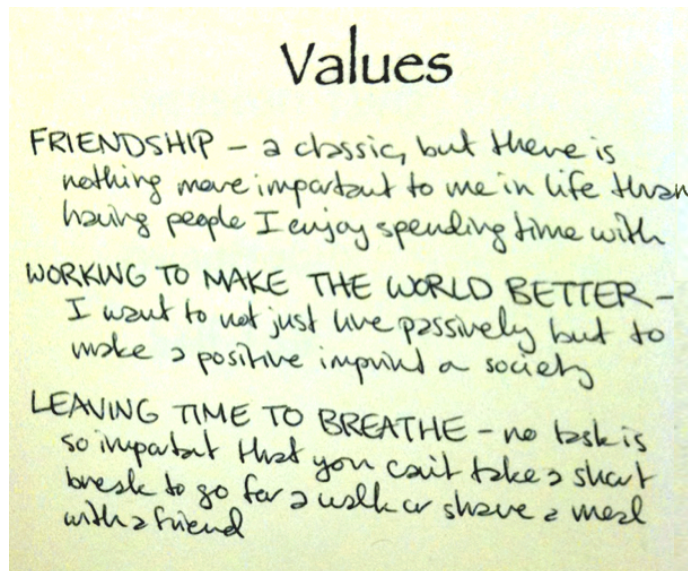 Values
FRIENDSHIP – a classic, but there is
nothing more important to me in life than
having people I enjoy spending time with
WORKING TO MAKE THE WORLD BETTER –
I want to not just live passively but to
make a positive imprint o society
LEAVING TIME TO BREATHE – no task is
so important that you can't take a short
break to go for a walk or share a meal
with a friend